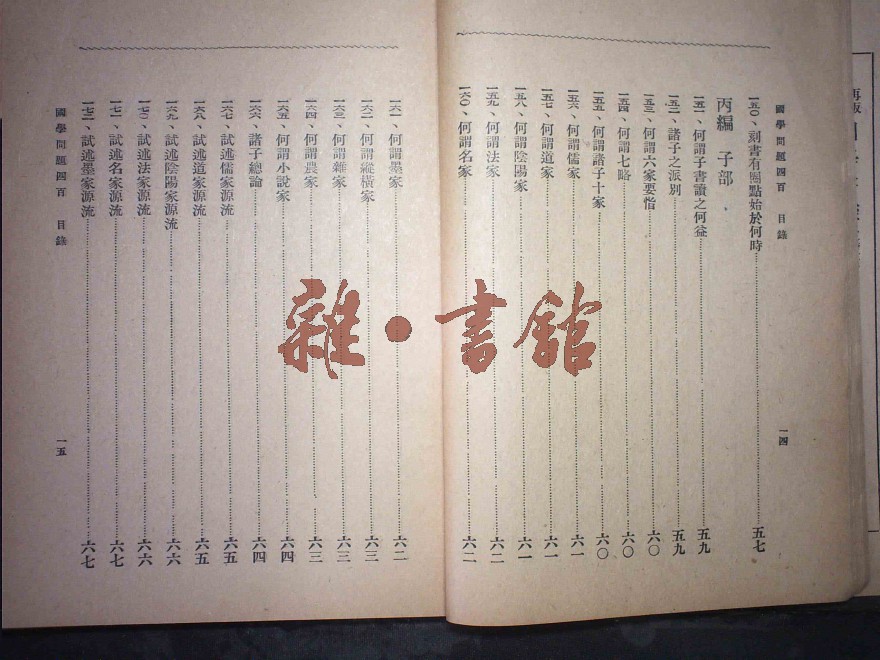 國學問題四百 目錄 一四
一五〇、刻書有圈點始於何時 五七
丙編 子部
一五一、何謂子書讀之何益 五九
一五二、諸子之派別 五九
一五三、何謂六家要恉 六〇
一五四、何謂七略 六〇
一五五、何謂諸子十家 六〇
一五六、何謂儒家 六一
一五七、何謂道家 六一
一五八、何謂陰陽家 六一
一五九、何謂法家 六二
一六〇、何謂名家 六二
一六一、何謂墨家 六二
一六二、何謂縱橫家 六三
一六三、何謂雜家 六三
一六四、何謂農家 六三
一六五、何謂小說家 六四
一六六、諸子總論 六四
一六七、試述儒家源流 六五
一六八、試述道家源流 六五
一六九、試述陰陽家源流 六六
一七〇、試述法家源流 六六
一七一、試述名家源流 六七
一七二、試述墨家源流 六七
國學問題四百 目錄 一五
雜·書館